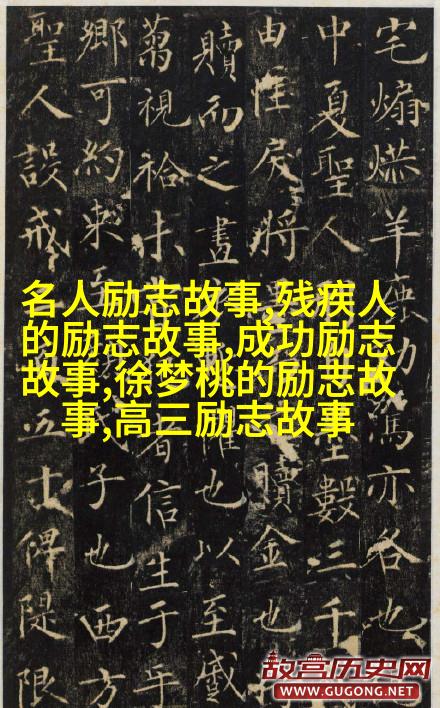 名人励志故事,残疾人
的励志故事,成功励志
故事,徐梦桃的励志故
事,高三励志故事
宅煽羊亦各也
中夏聖人數三千
由性戾將贖金也
贖而之也以至戲
視有信生于年
鄉可約束子也西方
聖人設戒五俾隄限
故宫历史网
WWW.GUGONG.NET